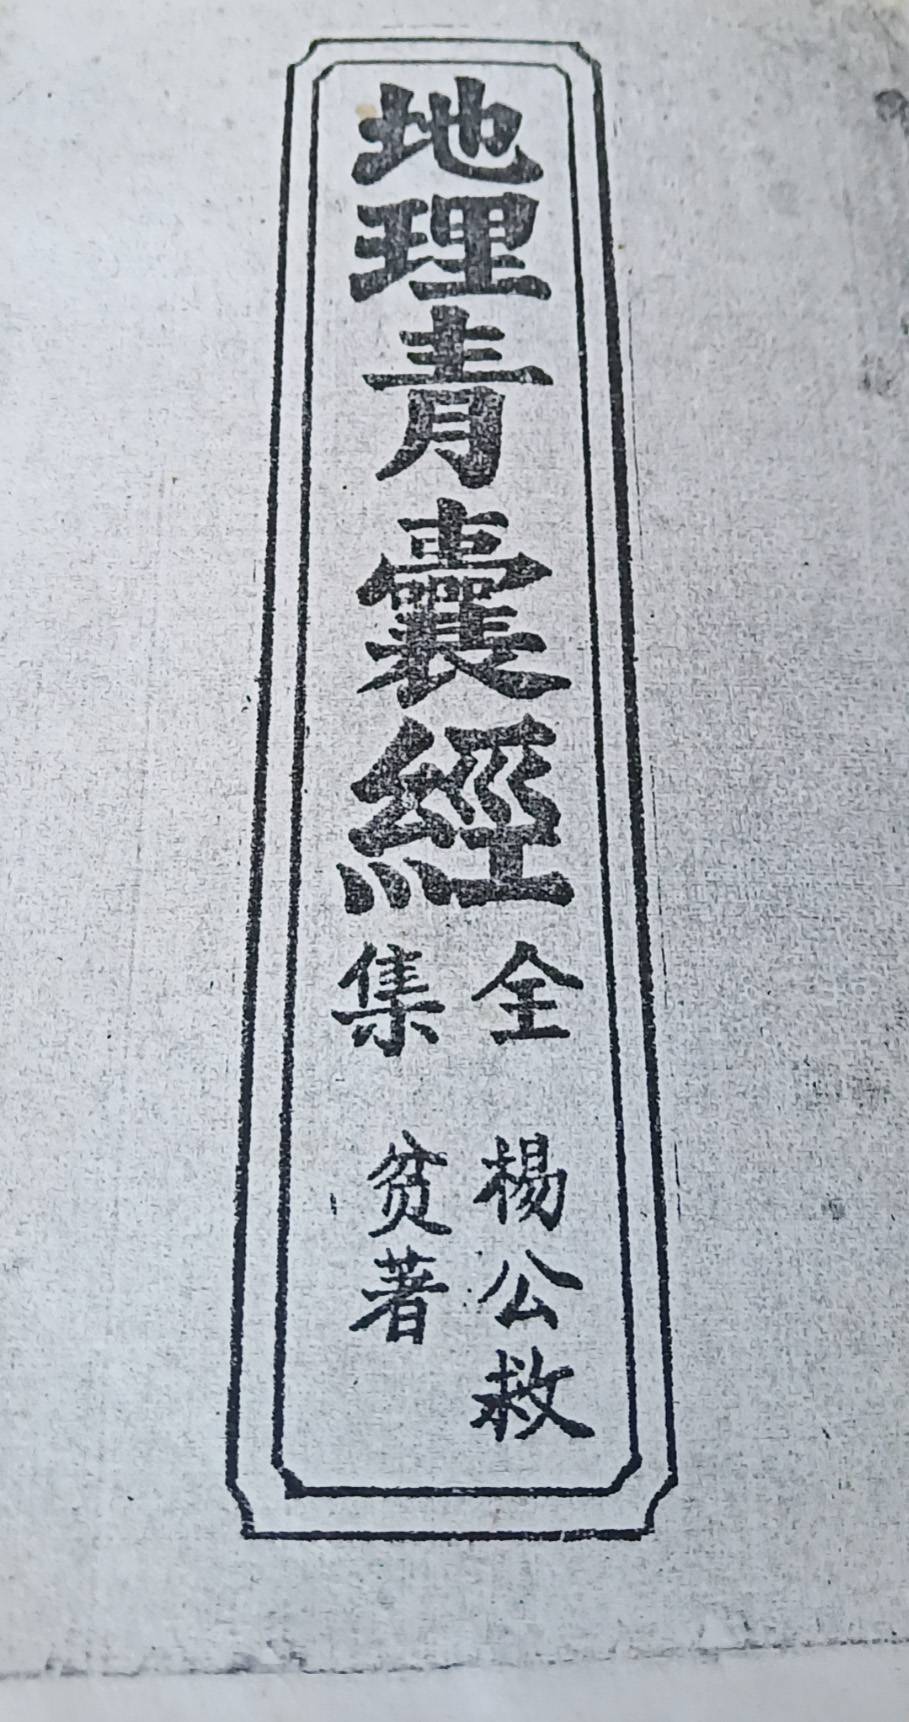 地理青囊經
全集
楊公救
貧著